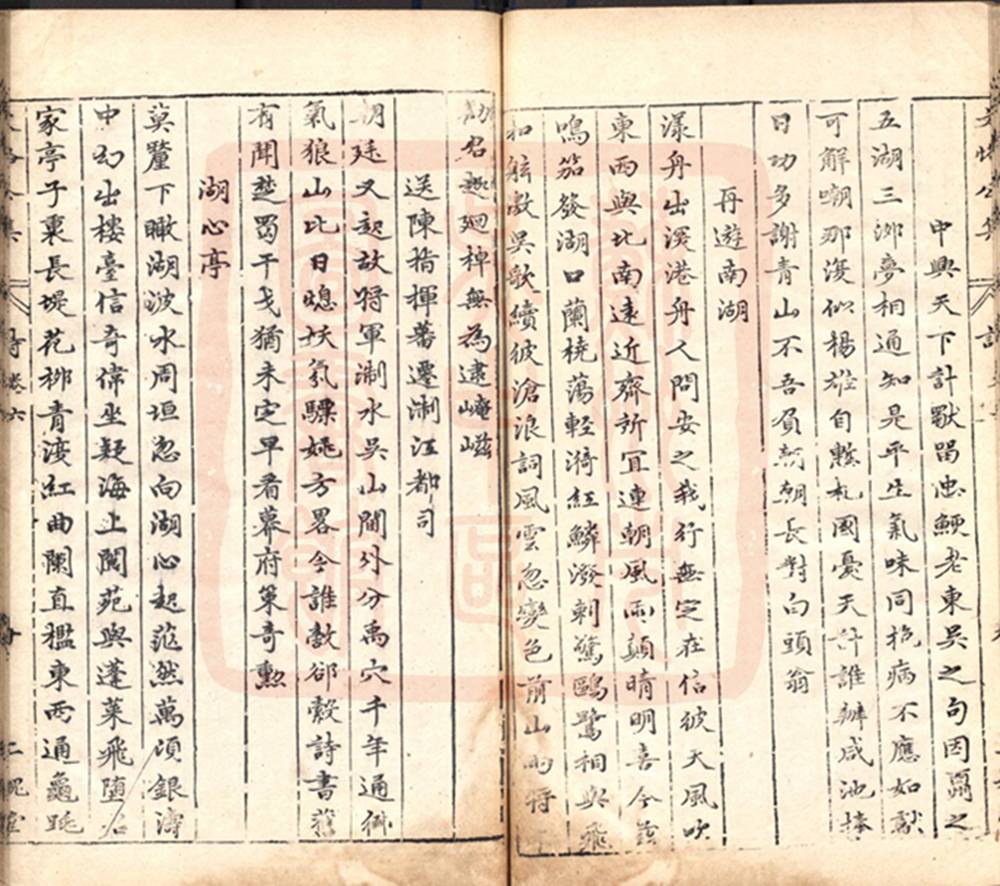 中興天下計猷曷忠鯁老東吳之句因爲之
五湖三泖夢相通知是平生氣味同抱病不應如
可解嘲那復似楊雄自慙札國憂天計誰辦咸池捧
日功多謝青山不吾負朝朝長對白頭翁
再遊南湖
漾舟出溪港舟人問安之我行無定在信彼天風吹
東西與北南遠近齊所宜連朝風雨顛晴明喜今茲
鳴笳發湖口蘭橈蕩輕漪紅鱗潑剌驚鷗鷺相與飛
和觥敲吳歌續彼滄浪詞風雲忽變色前山雨將
勛名起廻稗無為逮崦嵫
送陳指揮蕃遷淛江都司
朝廷又起故將軍淛水吳山閫外分禹穴千年通
氣狼山比日熄妖氛驃姚方畧今誰敵郤縠詩書舊
有聞楚蜀干戈猶未定早看幕府策奇勲
湖心亭
莫釐下瞰湖波水周垣忽向湖心起茫然萬頃銀濤
中幻出樓臺信奇偉坐疑海上閬苑與蓬萊飛墮
家亭子裏長堤花柳青渡紅曲闌直檻東西通龜
詩 卷六